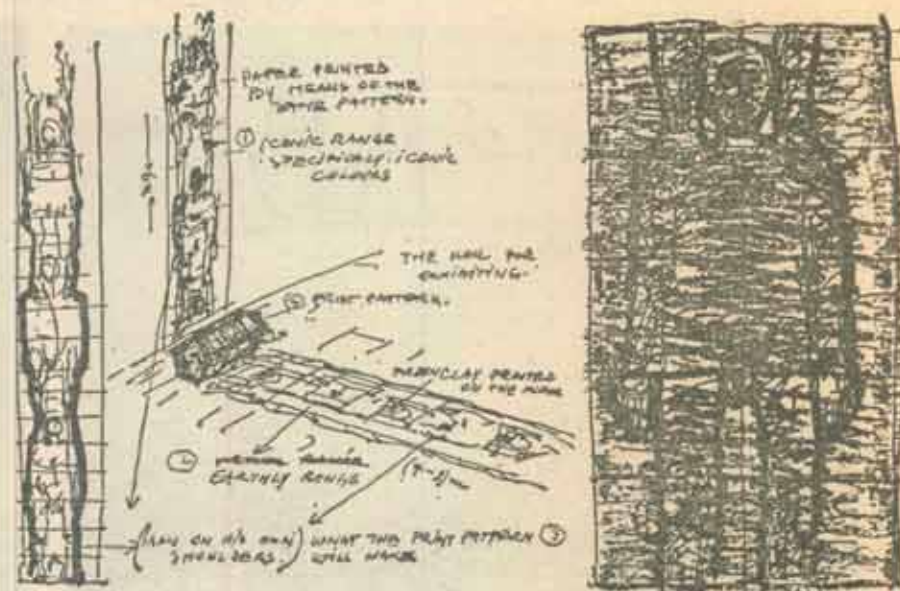 PAPER PRINTED
BY MEANS OF THE
SAME PATTERN.
① ICONIC RANGE
SPECIFICALY: ICONIC
COLOURS
THE HALL FOR
EXHIBITING
PRINT PATTERN.
CLAY PRINTED
ON THE
②
EARTHLY RANGE
(MAN ON HIS OWN
SHOULDERS.)
WHAT THE PRINT PATTERN ③
WILL MAKE